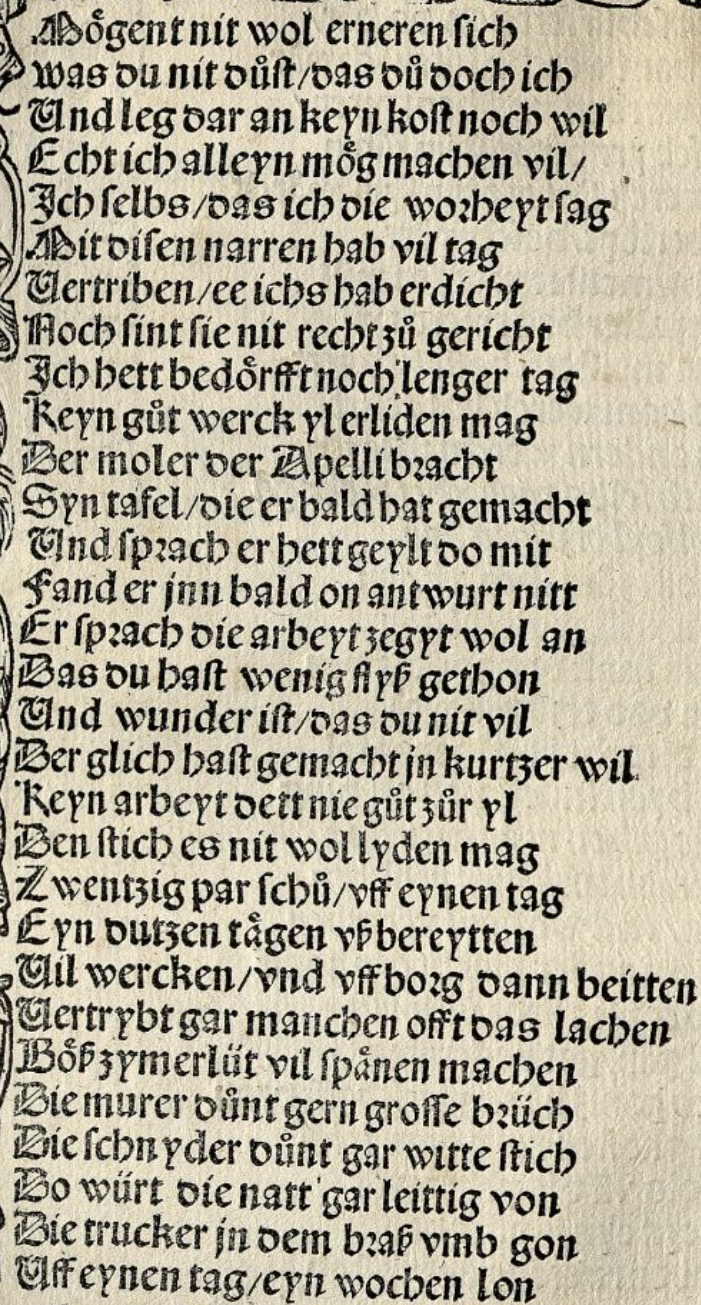 Mögent nit wol erneren sich
was du nit důst/das dů doch ich
Und leg dar an keyn kost noch wil
Echt ich alleyn mög machen vil/
Ich selbs/das ich die worheyt sag
Mit disen narren hab vil tag
Vertriben/ee ichs hab erdicht
Noch sint sie nit recht zů gericht
Ich hett bedörfft noch lenger tag
Keyn gůt werck yl erliden mag
Der moler der Apelli bracht
Syn tafel/die er bald hat gemacht
Und sprach er hett geylt do mit
Fand er jnn bald on antwurt nitt
Er sprach die arbeyt zegyt wol an
Das du hast wenig flyß gethon
Und wunder ist/das du nit vil
Der glich hast gemacht jn kurtzer wil
Keyn arbeyt dett nie gůt zůr yl
Den stich es nit wol lyden mag
Zwentzig par schů/vff eynen tag
Eyn dutzen tägen vß bereytten
Vil wercken/vnd vff borg dann beitten
Vertrybt gar manchen offt das lachen
Böß zymerlüt vil spänen machen
Die murer důnt gern grosse brüch
Die schnyder důnt gar witte stich
Do würt die natt gar leittig von
Die trucker jn dem braß vmb gon
Uff eynen tag/eyn wochen lon